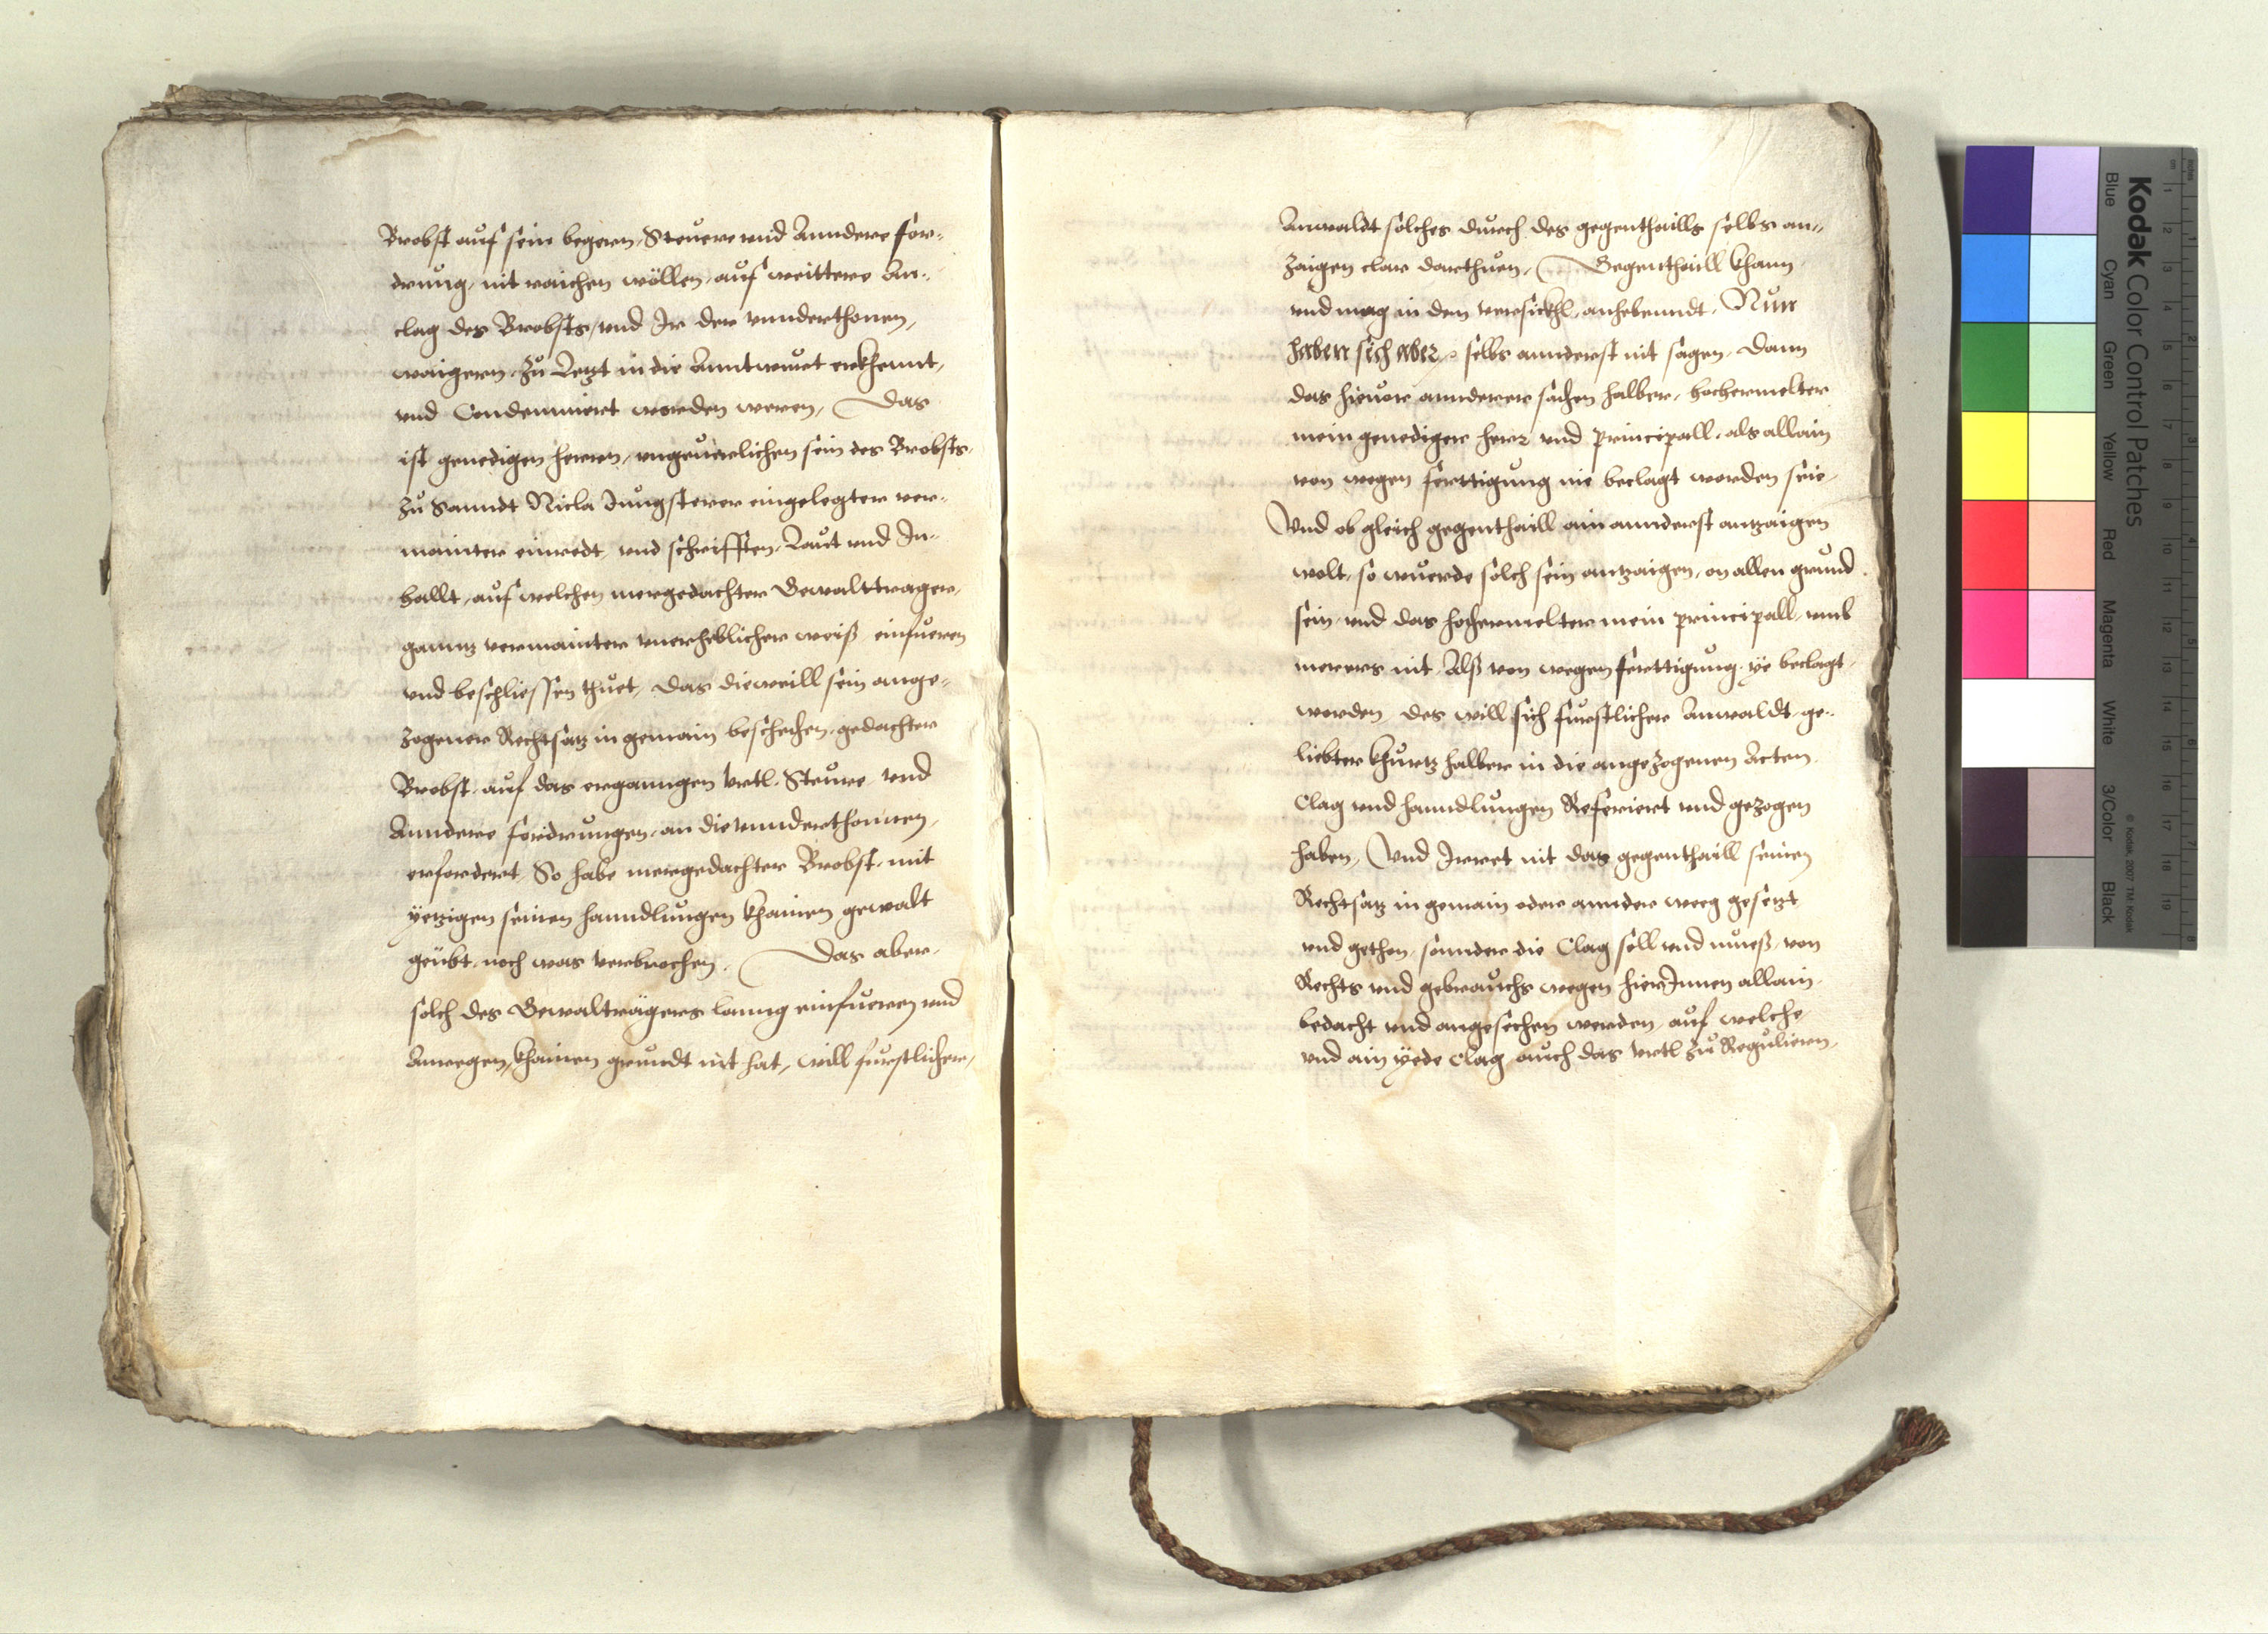 Brobst auf sein begern, Steuere und Anndere for-
drung, nit raichen wöllen, auf weittere An-
clag des Brobsts, und Ir der unnderthonen,
waigern, zu Letzt in die Anntwurt erkhennt,
und Condemniert worden weren, Das
ist genedigen herren, ungeuerlichen sein des Brobsts,
zu Sanndt Nicla Jungsterer eingelegter ver-
mainter einredt, und schrifften, Laut und In-
hallt, auf welchen mergedachter Gewalttrager,
ganntz vermainter unerheblicher weiß einfueren
und beschliessen thuet, Das dieweill sein ange-
zogener Rechtsatz in gemain beschechen, gedachter
Brobst, auf das erganngen Urtl, Steure, und
Anndere fordrungen, an die unnderthonnen,
erfordert, So habe mergedachter Brobst, mit
yetzigen seinen hanndlungen khainen gewalt
geübt, noch was verbrochen, Das aber,
solch des Gewaltragers lanng einfueren und
Anregen, khainen grundt nit hat, will furstlicher,
Anwaldt solches durch des gegenthaills selbs an-
zaigen clar darthuen, Gegenthaill khann
und mag in dem versickhl, anhebenndt, Nun
haben sich aber, selbs annderst nit sagen, dann
das hieuor annderer sachen halber, hochermelter
mein genediger herr und principall, als allain
von wegen ferttigung nie beclagt worden seie,
Und ob gleich gegenthaill ain annderst antzaigen
wolt, so wuerde solch sein antzaigen, on allen grund
sein, und das hochermelter mein principall, umb
merers nit, Alß von wegen ferttigung, ye beclagt,
worden, des will sich furstlicher Anwaldt, ge-
liebter khurtz halber in die angezogenen Acten,
Clag und hanndlungen Referiert und gezogen
haben, Und Irret nit das gegenthaill seinen
Rechtsatz in gemain oder annder weeg gesetzt
und gethon, sonnder die Clag soll und mueß, von
Rechts und gebrauchs wegen hierInnen allain,
bedacht und angesechen werden, auf welche,
und ain yede Clag auch das Urtl zu Regulieren,
Kodak Color Control Patches
Blue Cyan Green Yellow Red Magenta White 3/Color Black
© Kodak, 2007 TM: Kodak